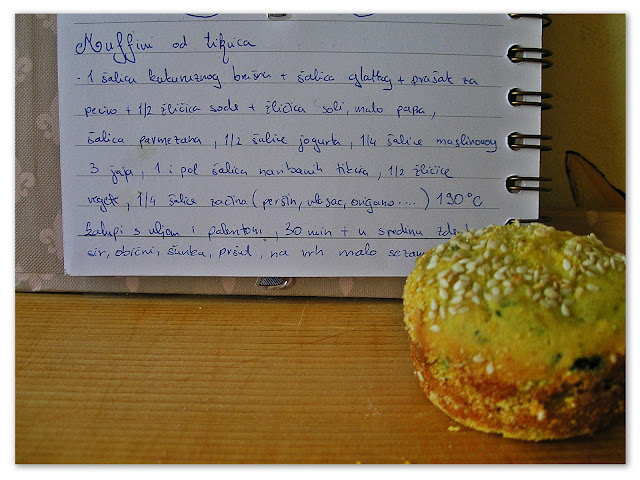 Muffini od tikvica
- 1 šalica kukuruznog brašna + šalica glatkog + prašak za
pecivo + 1/2 žličica sode + žličica soli, malo papra,
šalica parmezana, 1/2 šalice jogurta, 1/4 šalice maslinovog
3 jaja, 1 i pol šalica naribanih tikvica, 1/2 žličice
vegete, 1/4 šalice začina (peršin, vlasac, origano ....) 190°C
kalupi s uljem i palentom, 30 min + u sredinu
sir, obični, šunka, pršut, na vrh malo